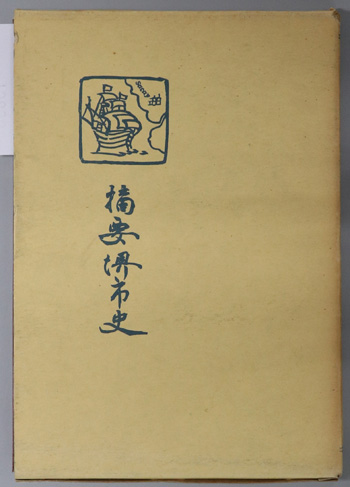 摘要堺市史